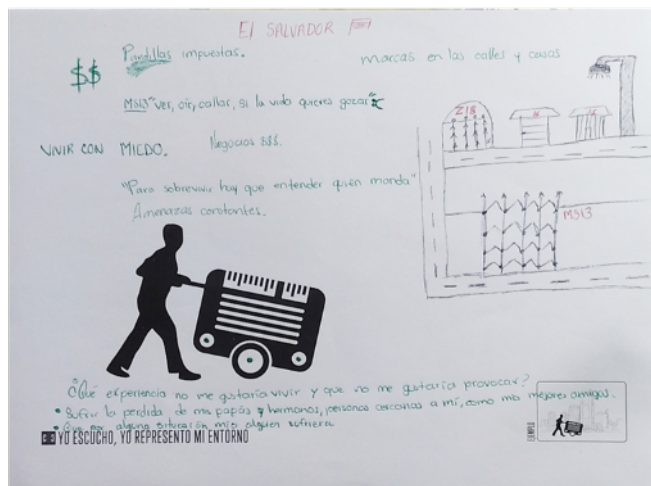 El SALVADOR
$$
Pandillas impuestas.
marcas en las calles y casas
MS13 "ver, oir, callar, si la vida quieres gozar"
VIVIR CON MIEDO.
Negocios $$$.
"Para sobrevivir hay que entender quién manda"
Amenazas constantes.
Z18
MS13
¿Qué experiencia no me gustaría vivir y que no me gustaría provocar?
• Sufrir la perdida de mis papás y hermanos, personas cercanas a mí, como mis mejores amigos.
• Que por alguna situación mía alguien sufriera
YO ESCUCHO, YO REPRESENTO MI ENTORNO
EJEMPLO